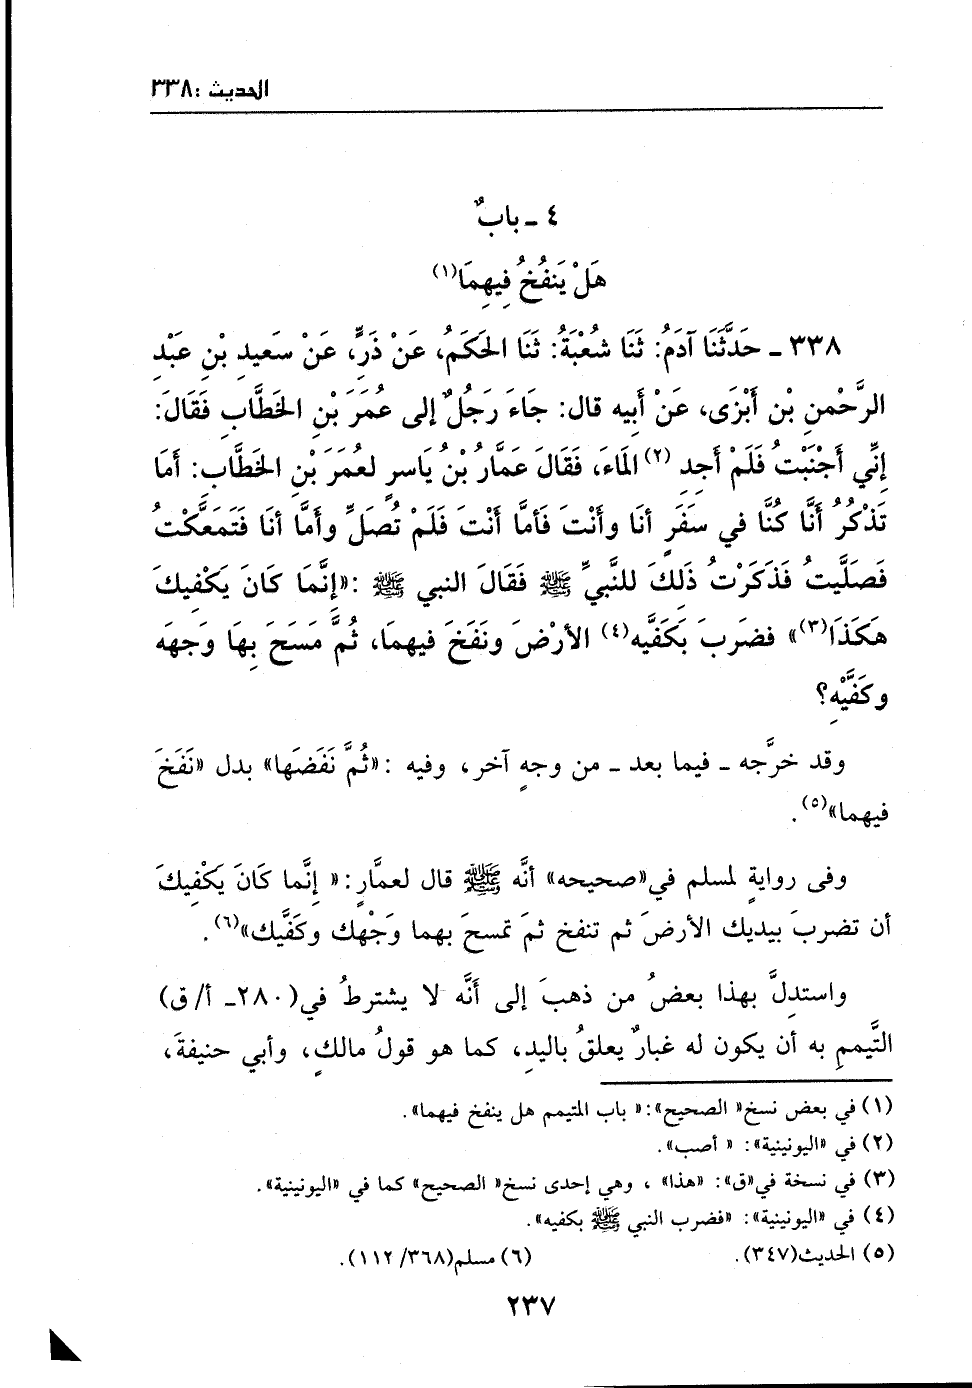 الحديث :٣٣٨
٤ ـ بابٌ
هَلْ يَنفُخُ فِيهِمَا(١)
٣٣٨ ـ حَدَّثَنَا آدَمُ: ثَنَا شُعْبَةُ: ثَنَا الحَكَمُ، عَنْ ذَرٍّ، عَنْ سَعيدِ بْنِ عَبْدِ
الرَّحْمنِ بْنِ أَبْزَى، عَنْ أَبِيه قال: جَاءَ رَجُلٌ إلى عُمَرَ بْنِ الخَطَّابِ فَقَالَ:
إنِّي أَجْنَبْتُ فَلَمْ أجِد (٢) المَاءَ، فَقَالَ عَمَّارُ بْنُ يَاسرٍ لعُمَرَ بْنِ الخَطَّابِ: أَمَا
تَذْكُرُ أَنَّا كُنَّا في سَفَرٍ أنَا وأَنْتَ فَأمَّا أَنْتَ فَلَمْ تُصَلِّ وأَمَّا أنَا فَتَمَعَّكْتُ
فَصَلَّيتُ فَذَكَرْتُ ذَلِكَ للنَّبيِّ ﷺ فَقَالَ النبي ﷺ :«إنَّمَا كَانَ يَكْفِيكَ
هَكَذَا(٣)» فضَربَ بَكَفَّيه(٤) الأرْضَ ونَفَخَ فيهمَا، ثُمَّ مَسَحَ بِهَا وَجهَه
وكَفَّيْهِ؟
وقد خرَّجه ـ فيما بعد ـ من وجهٍ آخر، وفيه :«ثُمَّ نَفَضَها» بدل «نَفَخَ
فيهما»(٥).
وفى روايةٍ لمسلم في«صحيحه» أنَّه ﷺ قال لعمَّارٍ:« إنَّما كَانَ يَكْفِيكَ
أن تضربَ بيديك الأرضَ ثم تنفخ ثمَ تمسحَ بهما وَجْهك وكَفَّيك»(٦).
واستدلَّ بهذا بعضُ من ذهبَ إلى أَنَّه لا يشترطُ في(٢٨٠ـ أ/ق)
التَّيممِ به أن يكون له غبارٌ يعلقُ باليدِ، كما هو قولُ مالكٍ، وأبي حنيفةَ،
(١) في بعض نسخ« الصحيح»:« باب المتيمم هل ينفخ فيهما».
(٢) في «اليونينية»: « أصب».
(٣) في نسخة في«ق»: «هذا» ، وهي إحدى نسخ« الصحيح» كما في «اليونينية».
(٤) في «اليونينية»: «فضرب النبي ﷺ بكفيه».
(٥) الحديث(٣٤٧). (٦) مسلم(٣٦٨/ ١١٢).
٢٣٧